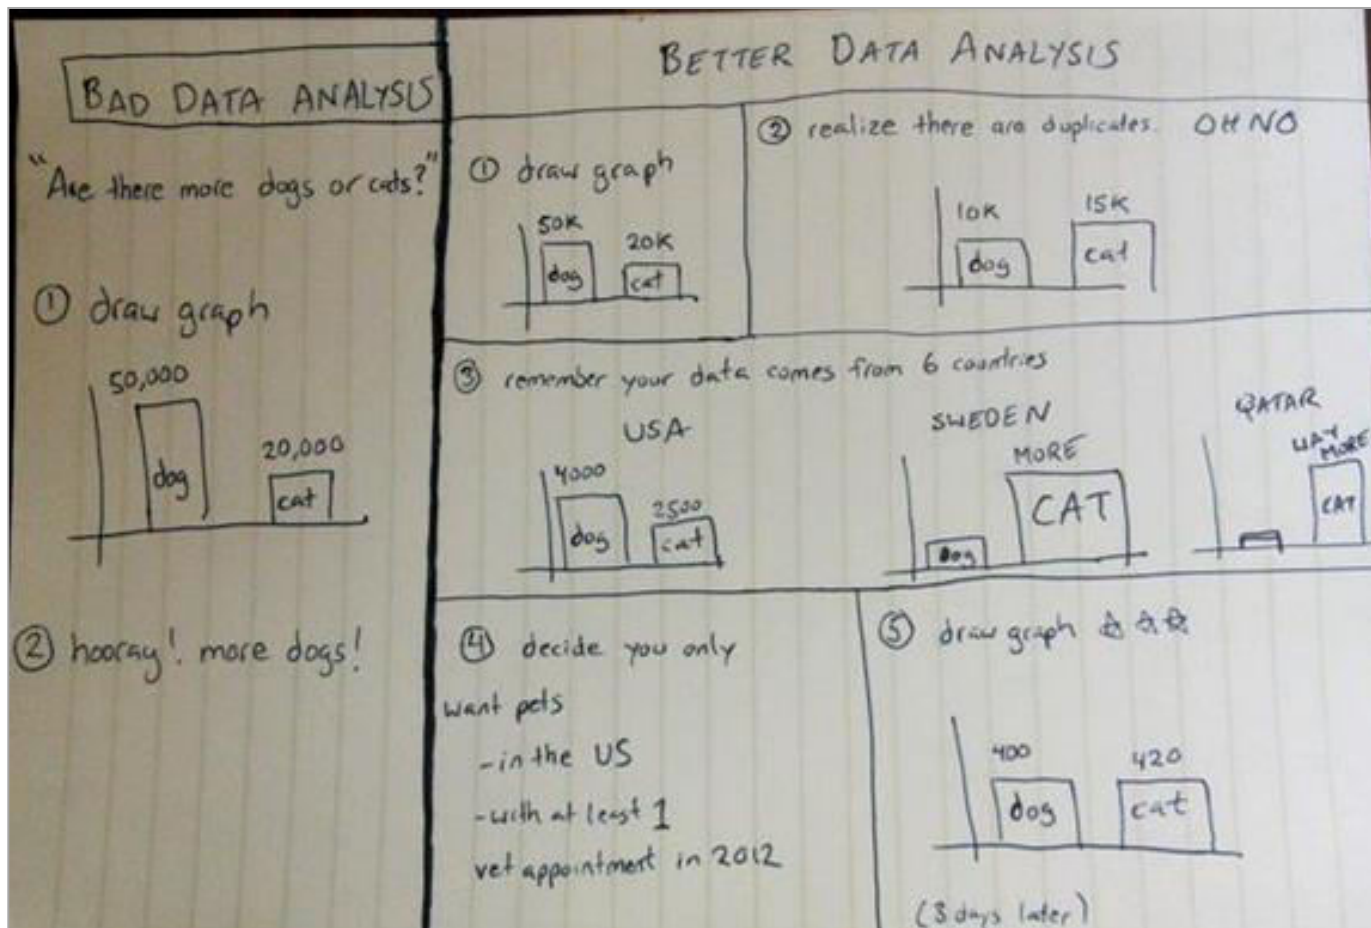 BAD DATA ANALYSIS
"Are there more dogs or cats?"
① draw graph
50,000
dog
20,000
cat
② hooray! more dogs!
BETTER DATA ANALYSIS
① draw graph
50K
dog
20K
cat
② realize there are duplicates. OH NO
10K
dog
15K
cat
③ remember your data comes from 6 countries
USA
4000
dog
2500
cat
SWEDEN
MORE
Dog
CAT
QATAR
WAY
MORE
CAT
④ decide you only
want pets
-in the US
-with at least 1
vet appointment in 2012
⑤ draw graph ☆☆☆
400
dog
420
cat
(3 days later)